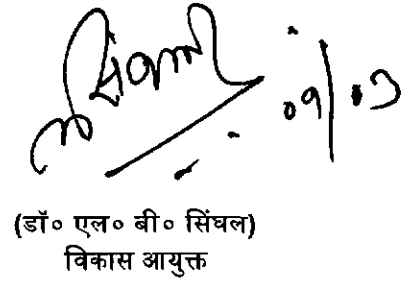 सिंघल
09/03
(डॉ० एल० बी० सिंघल)
विकास आयुक्त